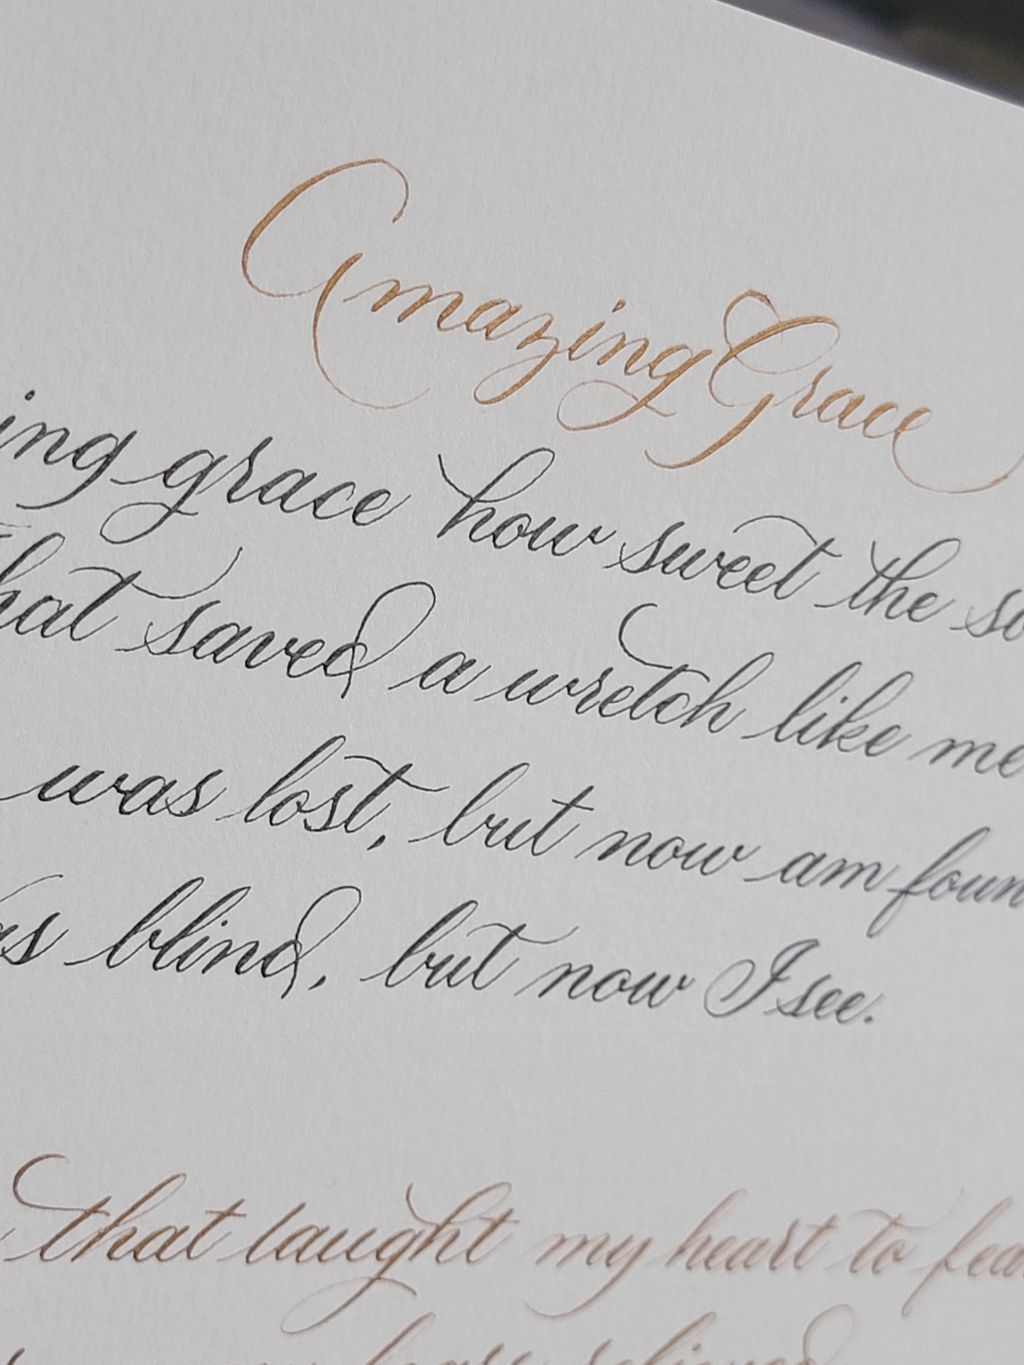 Amazing Grace
ing grace how sweet the so
hat saved a wretch like me
was lost, but now am foun
as blind, but now I see.
that laught my heart to fea
relieved